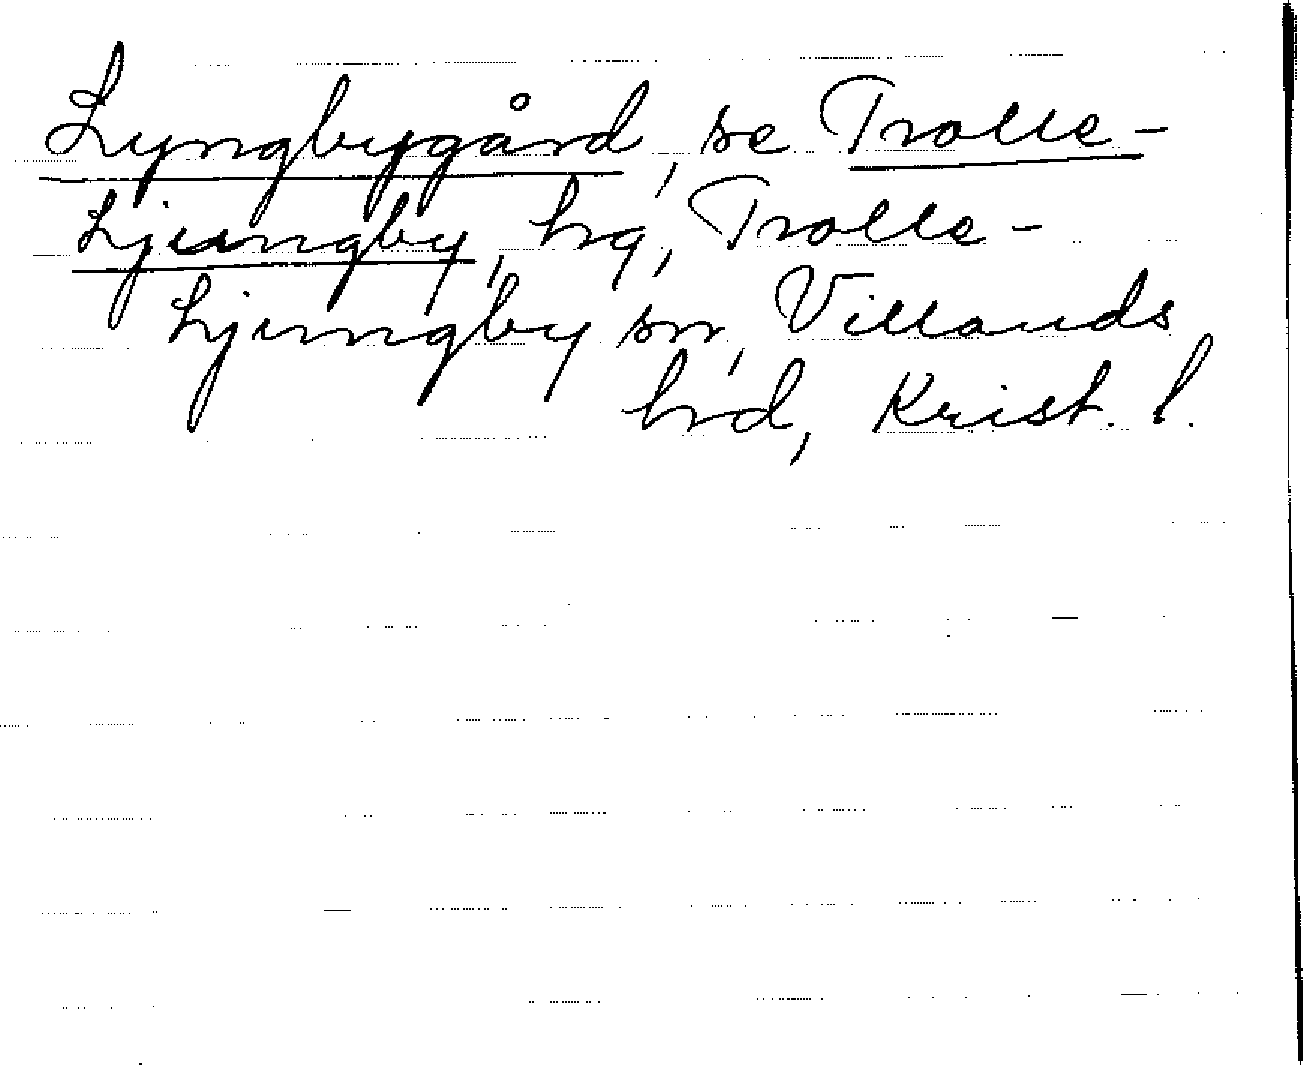 Lyngbygård, se Trolle-
Ljungby, hg, Trolle-
Ljungby sn, Villands
hrd, Krist. l.